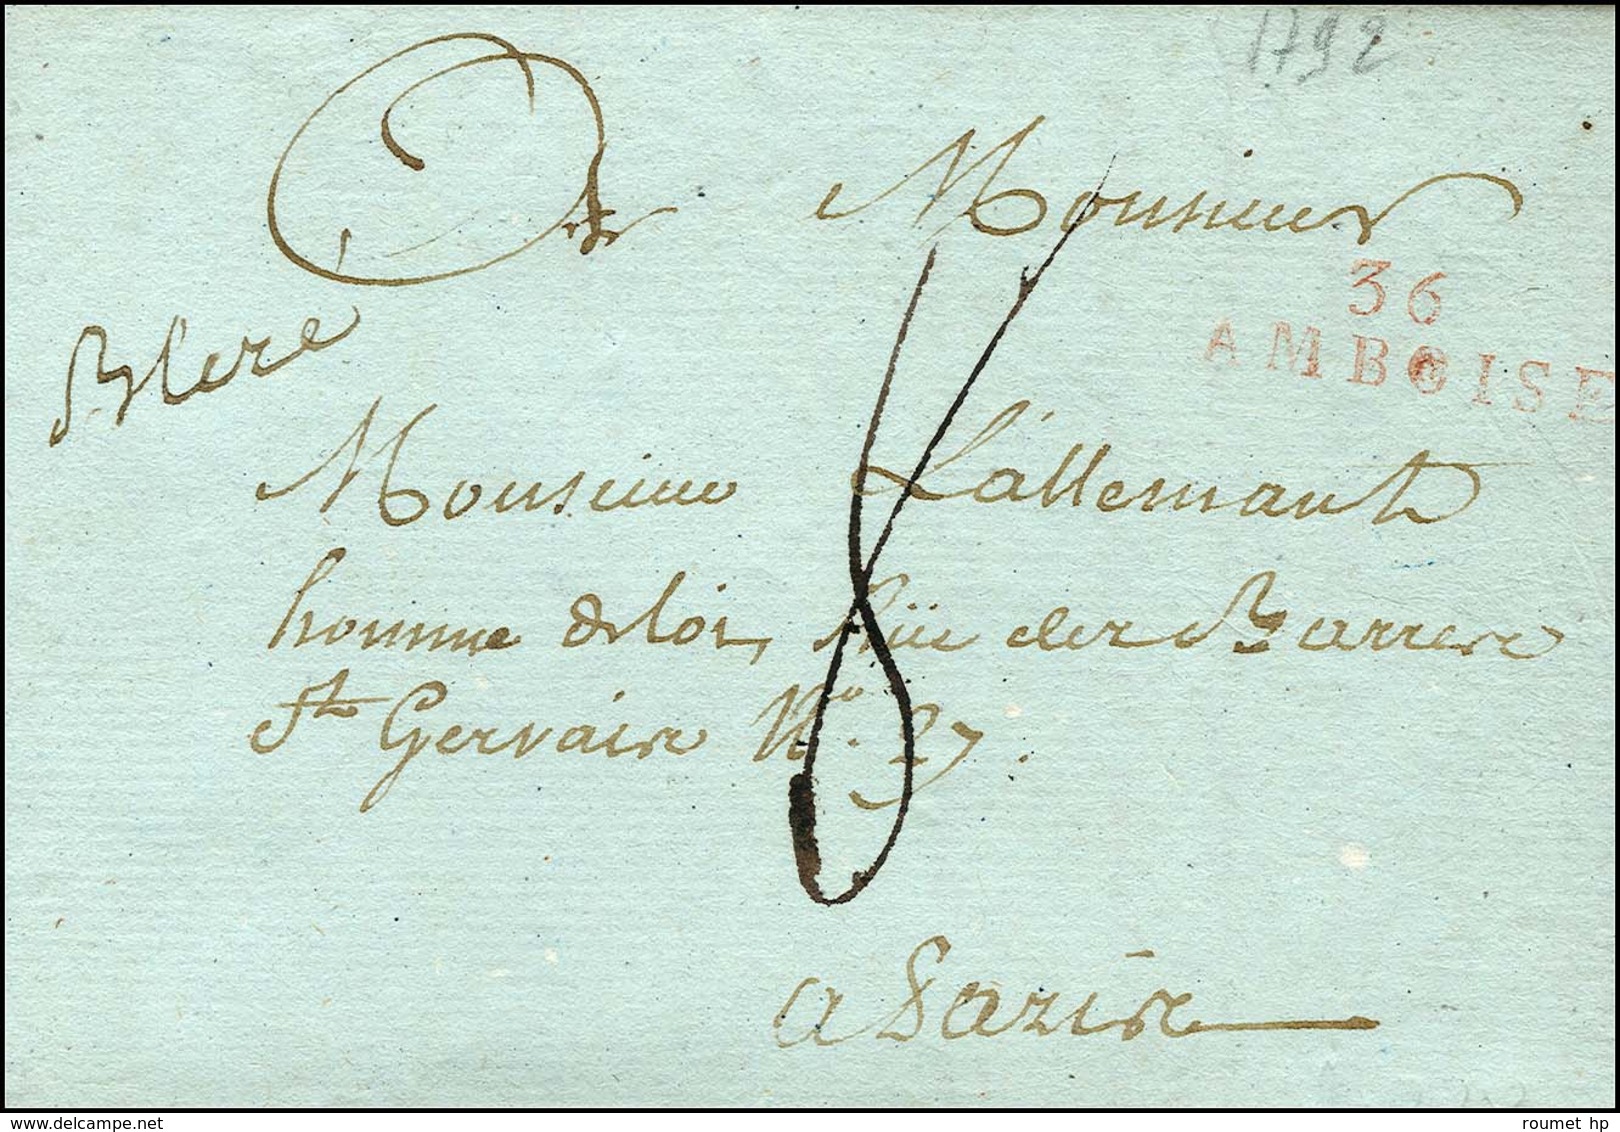 1792
A Monsieur
36
AMBOISE
Bleré
Monsieur Lallemant
homme de loi, Rüe des Barres
St Gervais N.o 37.
8
a Paris
roumet hp